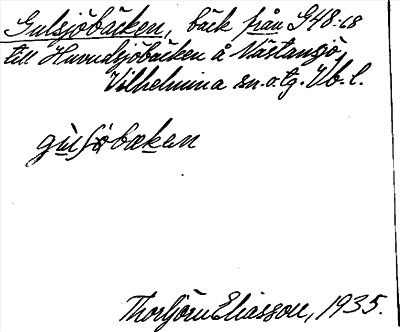 Gulsjöbäcken, bäck från G48:c8
till Huvudsjöbäcken å Västansjö,
Vilhelmina sn. o. tg. Vb. l.
gu̇lʃöbækən
Thorbjörn Eliasson, 1935.